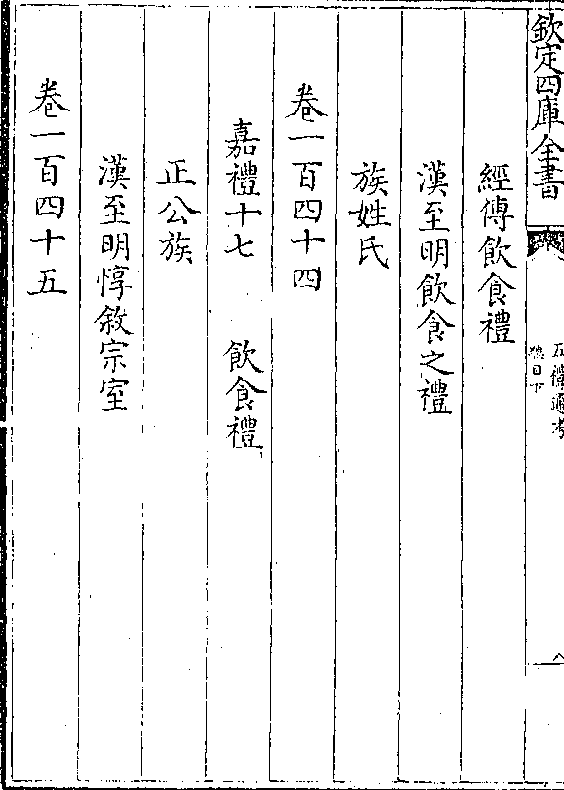 欽定四庫全書
五禮通考
總目下
經傳飲食禮
漢至明飲食之禮
族姓氏
卷一百四十四
嘉禮十七 飲食禮
正公族
漢至明惇敘宗室
卷一百四十五